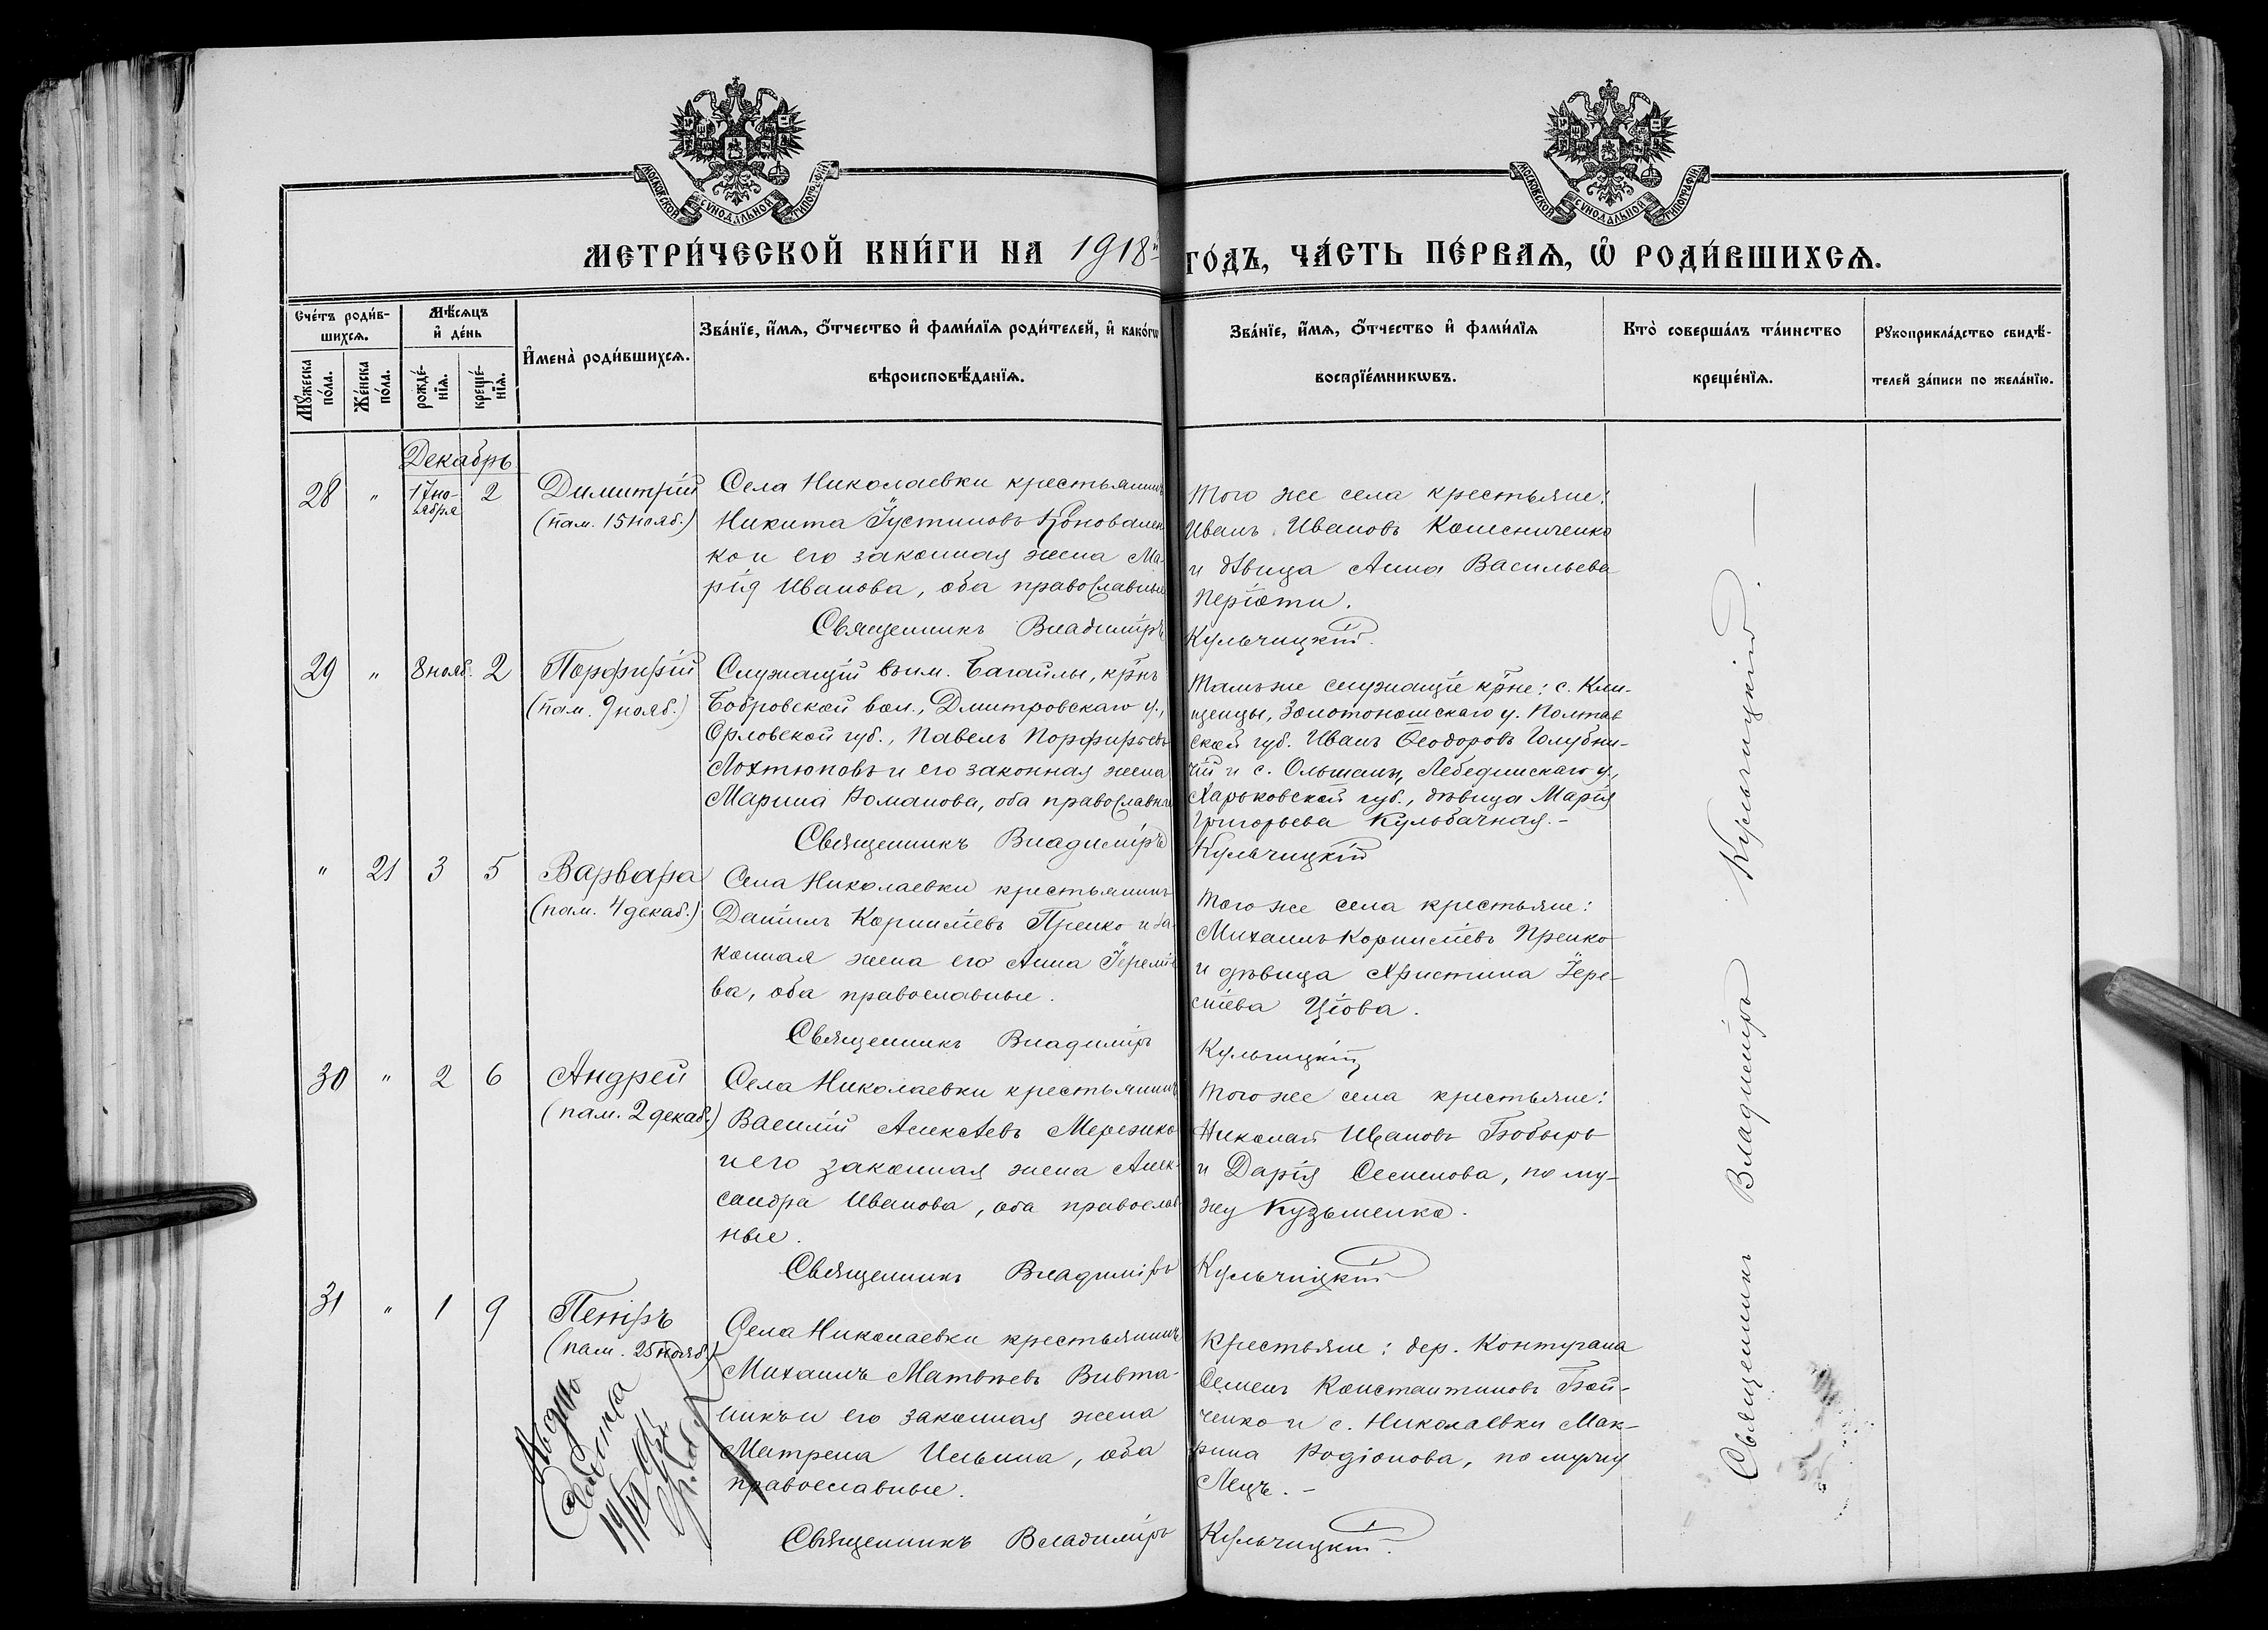 МОСКОВСКОЙ СѴНОДАЛЬНОЙ ТИПОГРАФІИ
МОСКОВСКОЙ СѴНОДАЛЬНОЙ ТИПОГРАФІИ
МЕТРИ́ЧЕСКОЙ КНИ́ГИ НА 1918й ГО́ДЪ, ЧА́СТЬ ПЕ́РВАѦ, Ѽ РОДИ́ВШИХСѦ.
Сче́тъ роди́в-
шихсѧ.
Мꙋ́жеска по́ла.
Же́нска по́ла.
Мѣ́сѧцъ
и҆ де́нь
рожде́-
нїѧ.
креще́-
нїѧ.
И҆мена̀ роди́вшихсѧ.
Зва́нїе, и҆́мѧ, ѻ҆́тчество и҆ фами́лїѧ роди́телей, и҆ како́гѡ
вѣроисповѣ́данїѧ.
Зва́нїе, и҆́мѧ, ѻ҆́тчество и҆ фами́лїѧ
воспрїе́мникѡвъ.
Кто̀ соверша́лъ та́инство
креще́нїѧ.
Рꙋкоприкла́дство свидѣ́-
телей за́писи по жела́нїю.
Декабрь
28 " 17 но-
ября 2
Димитрій
(пам. 15 нояб.)
Села Николаевки крестьянинъ
Никита Іустиновъ Коновален
ко и его законная жена Ма-
рія Иванова, оба православные
Того же села крестьяне:
Иванъ Ивановъ Колесниченко
и дѣвица Анна Васильева
Священникъ Владиміръ Кульчицкій.
29 " 8 нояб. 2
Порфирій
(пам. 9 нояб.)
Служащій въ им. Багайлы, кр-нъ
Бобровской вол., Дмитровскаго у.,
Орловской губ., Павелъ Порфирьевъ
Лохтюховъ и его законная жена
Марина Романова, оба православные
Тамъ же служащіе кр-не: с. Кли-
щенцы, Золотоношскаго у. Полтав
ской губ. Иванъ Ѳеодоровъ Голубни-
чій и с. Ольшаны, Лебединскаго у.,
Харьковской губ., дѣвица Марія
Григорьева Кульбачная.-
Священникъ Владиміръ Кульчицкій
" 21 3 5
Варвара
(пам. 4 декаб.)
Села Николаевки крестьянинъ
Даніилъ Корниліевъ Пренко и за-
конная жена его Анна Іереміе
ва, оба православные.
Того же села крестьяне:
Михаилъ Корниліевъ Пренко
и дѣвица Христина Іере-
міева
Священникъ Владиміръ Кульчицкій
30 " 2 6
Андрей
(пам. 2 декаб.)
Села Николаевки крестьянинъ
Василій Алексѣевъ Мережко
и его законная жена Алек-
сандра Иванова, оба православ
ные.
Того же села крестьяне:
Николай Ивановъ Бобырь
и Дарія Семенова, по му-
жу Кузьменко.
Священникъ Владиміръ Кульчицкій
31 " 1 9
Петръ
(пам. 25 нояб.)
Села Николаевки крестьянинъ
Михаилъ Матвѣевъ Вивта-
никъ и его законная жена
Матрена Ильина, оба
православные.
Крестьяне: дер. Контугана
Семенъ Константиновъ Бой-
ченко и с. Николаевки Мак-
рина Родіонова, по мужу
Лецъ.-
Священникъ Владиміръ Кульчицкій.
Священникъ Владиміръ Кульчицкій.